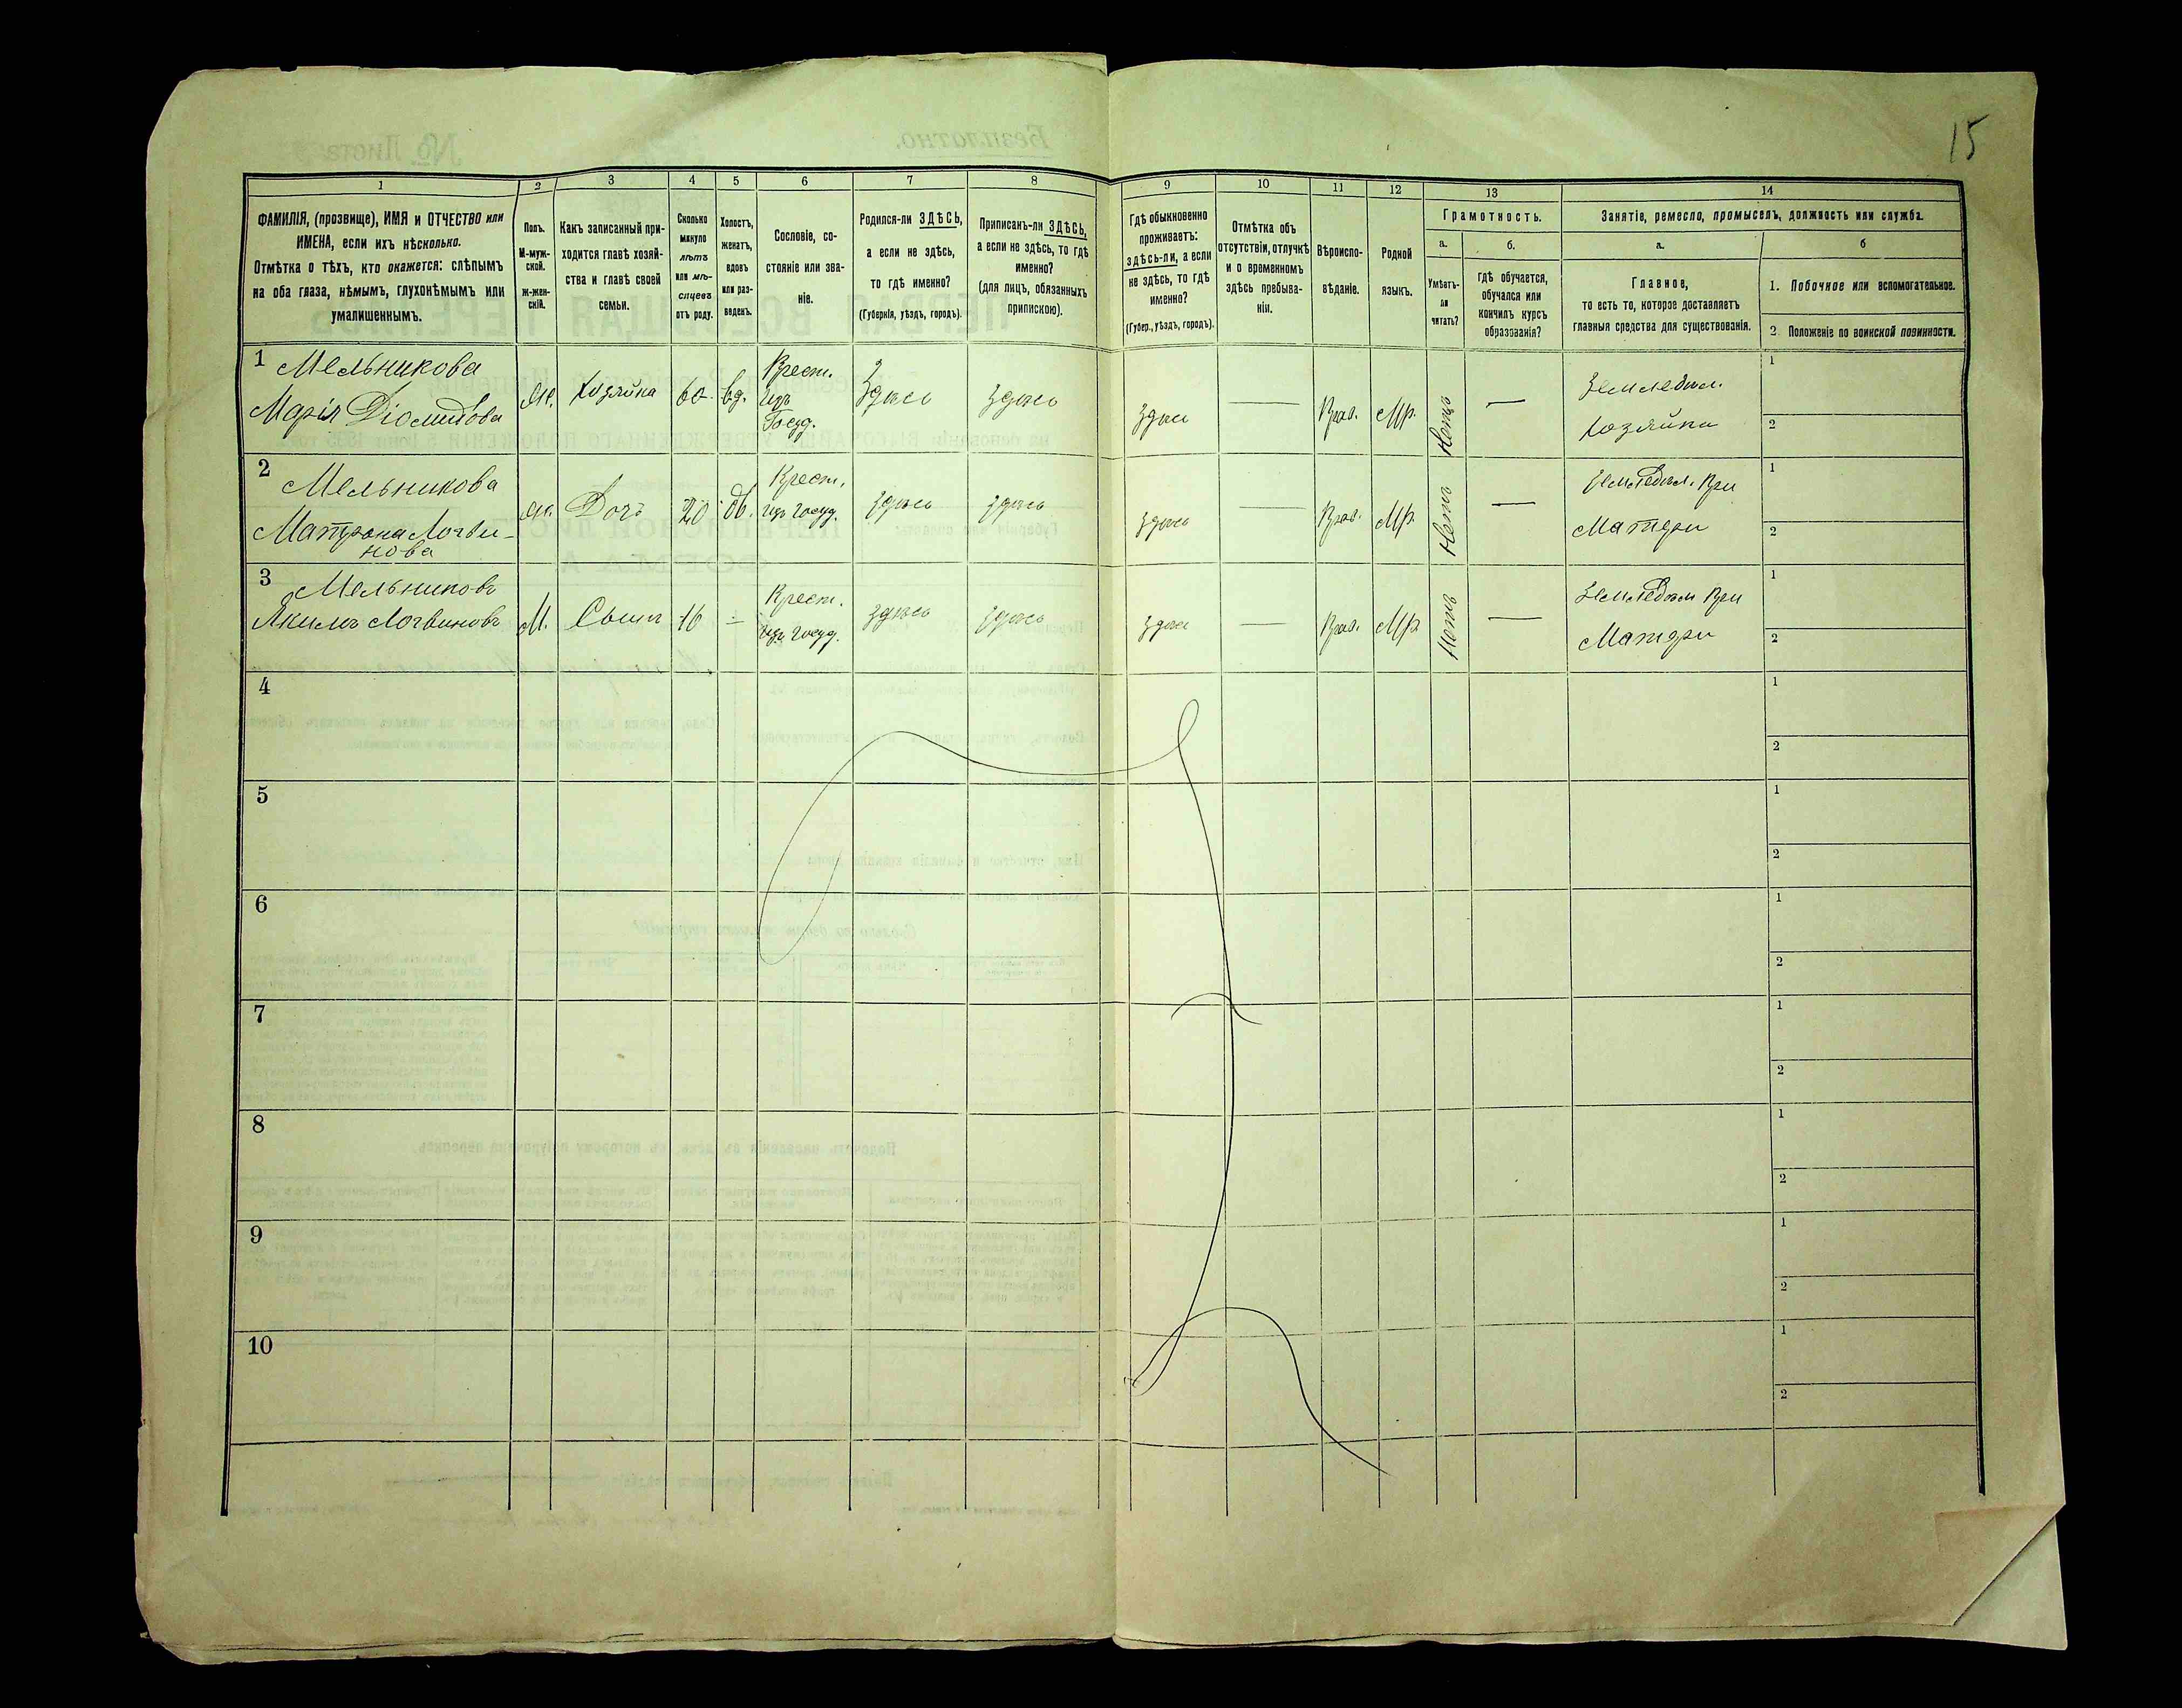 15
1
2
3
4
5
6
7
8
9
10
11
12
13
14
ФАМИЛІЯ, (прозвище), ИМЯ и ОТЧЕСТВО или
ИМЕНА, если ихъ нѣсколько.
Отмѣтка о тѣхъ, кто окажется: слѣпымъ
на оба глаза, нѣмымъ, глухонѣмымъ или
умалишеннымъ.
Полъ.
М-муж-
ской.
Ж-жен-
скій.
Какъ записанный при-
ходится главѣ хозяй-
ства и главѣ своей
семьи.
Сколько
минуло
лѣтъ
или мѣ-
сяцевъ
отъ роду.
Холостъ,
женатъ,
вдовъ
или раз-
веденъ.
Сословіе, со-
стояніе или зва-
ніе.
Родился-ли ЗДѢСЬ,
а если не здѣсь,
то гдѣ именно?
(Губернія, уѣздъ, городъ).
Приписанъ-ли ЗДѢСЬ,
а если не здѣсь, то гдѣ
именно?
(для лицъ, обязанныхъ
припискою).
Гдѣ обыкновенно
проживаетъ:
здѣсь-ли, а если
не здѣсь, то гдѣ
именно?
(Губер., уѣздъ, городъ).
Отмѣтка объ
отсутствіи, отлучкѣ
и о временномъ
здѣсь пребыва-
ніи.
Вѣроиспо-
вѣданіе.
Родной
языкъ.
Грамотность.
а.
б.
Умѣетъ-
ли
читать?
Гдѣ обучается,
обучался или
кончилъ курсъ
образованія?
Занятіе, ремесло, промыселъ, должность или служба.
а.
б
Главное,
то есть то, которое доставляетъ
главныя средства для существованія.
1. Побочное или вспомогательное.
2. Положеніе по воинской повинности.
1 Мельникова
Марія Діомидова
Ж. Хозяйка 60. вд.
Крест.
изъ
Госуд.
здѣсь здѣсь здѣсь — Прав. Мр. Нетъ —
Земледѣл.
Хозяйка
1
2
2 Мельникова
Матрона Логви-
нова
Ж. Дочь 20 дв.
Крест.
изъ госуд.
здѣсь здѣсь здѣсь — Прав. Мр. Нетъ —
Земледѣл. При
Матери
1
2
3 Мельниковъ
Якимъ Логвиновъ
М. Сынъ 16 -
Крест.
изъ госуд.
здѣсь здѣсь здѣсь — Прав. Мр. Нетъ —
Земледѣл При
Матери
1
2
4
1
2
5
1
2
6
1
2
7
1
2
8
1
2
9
1
2
10
1
2